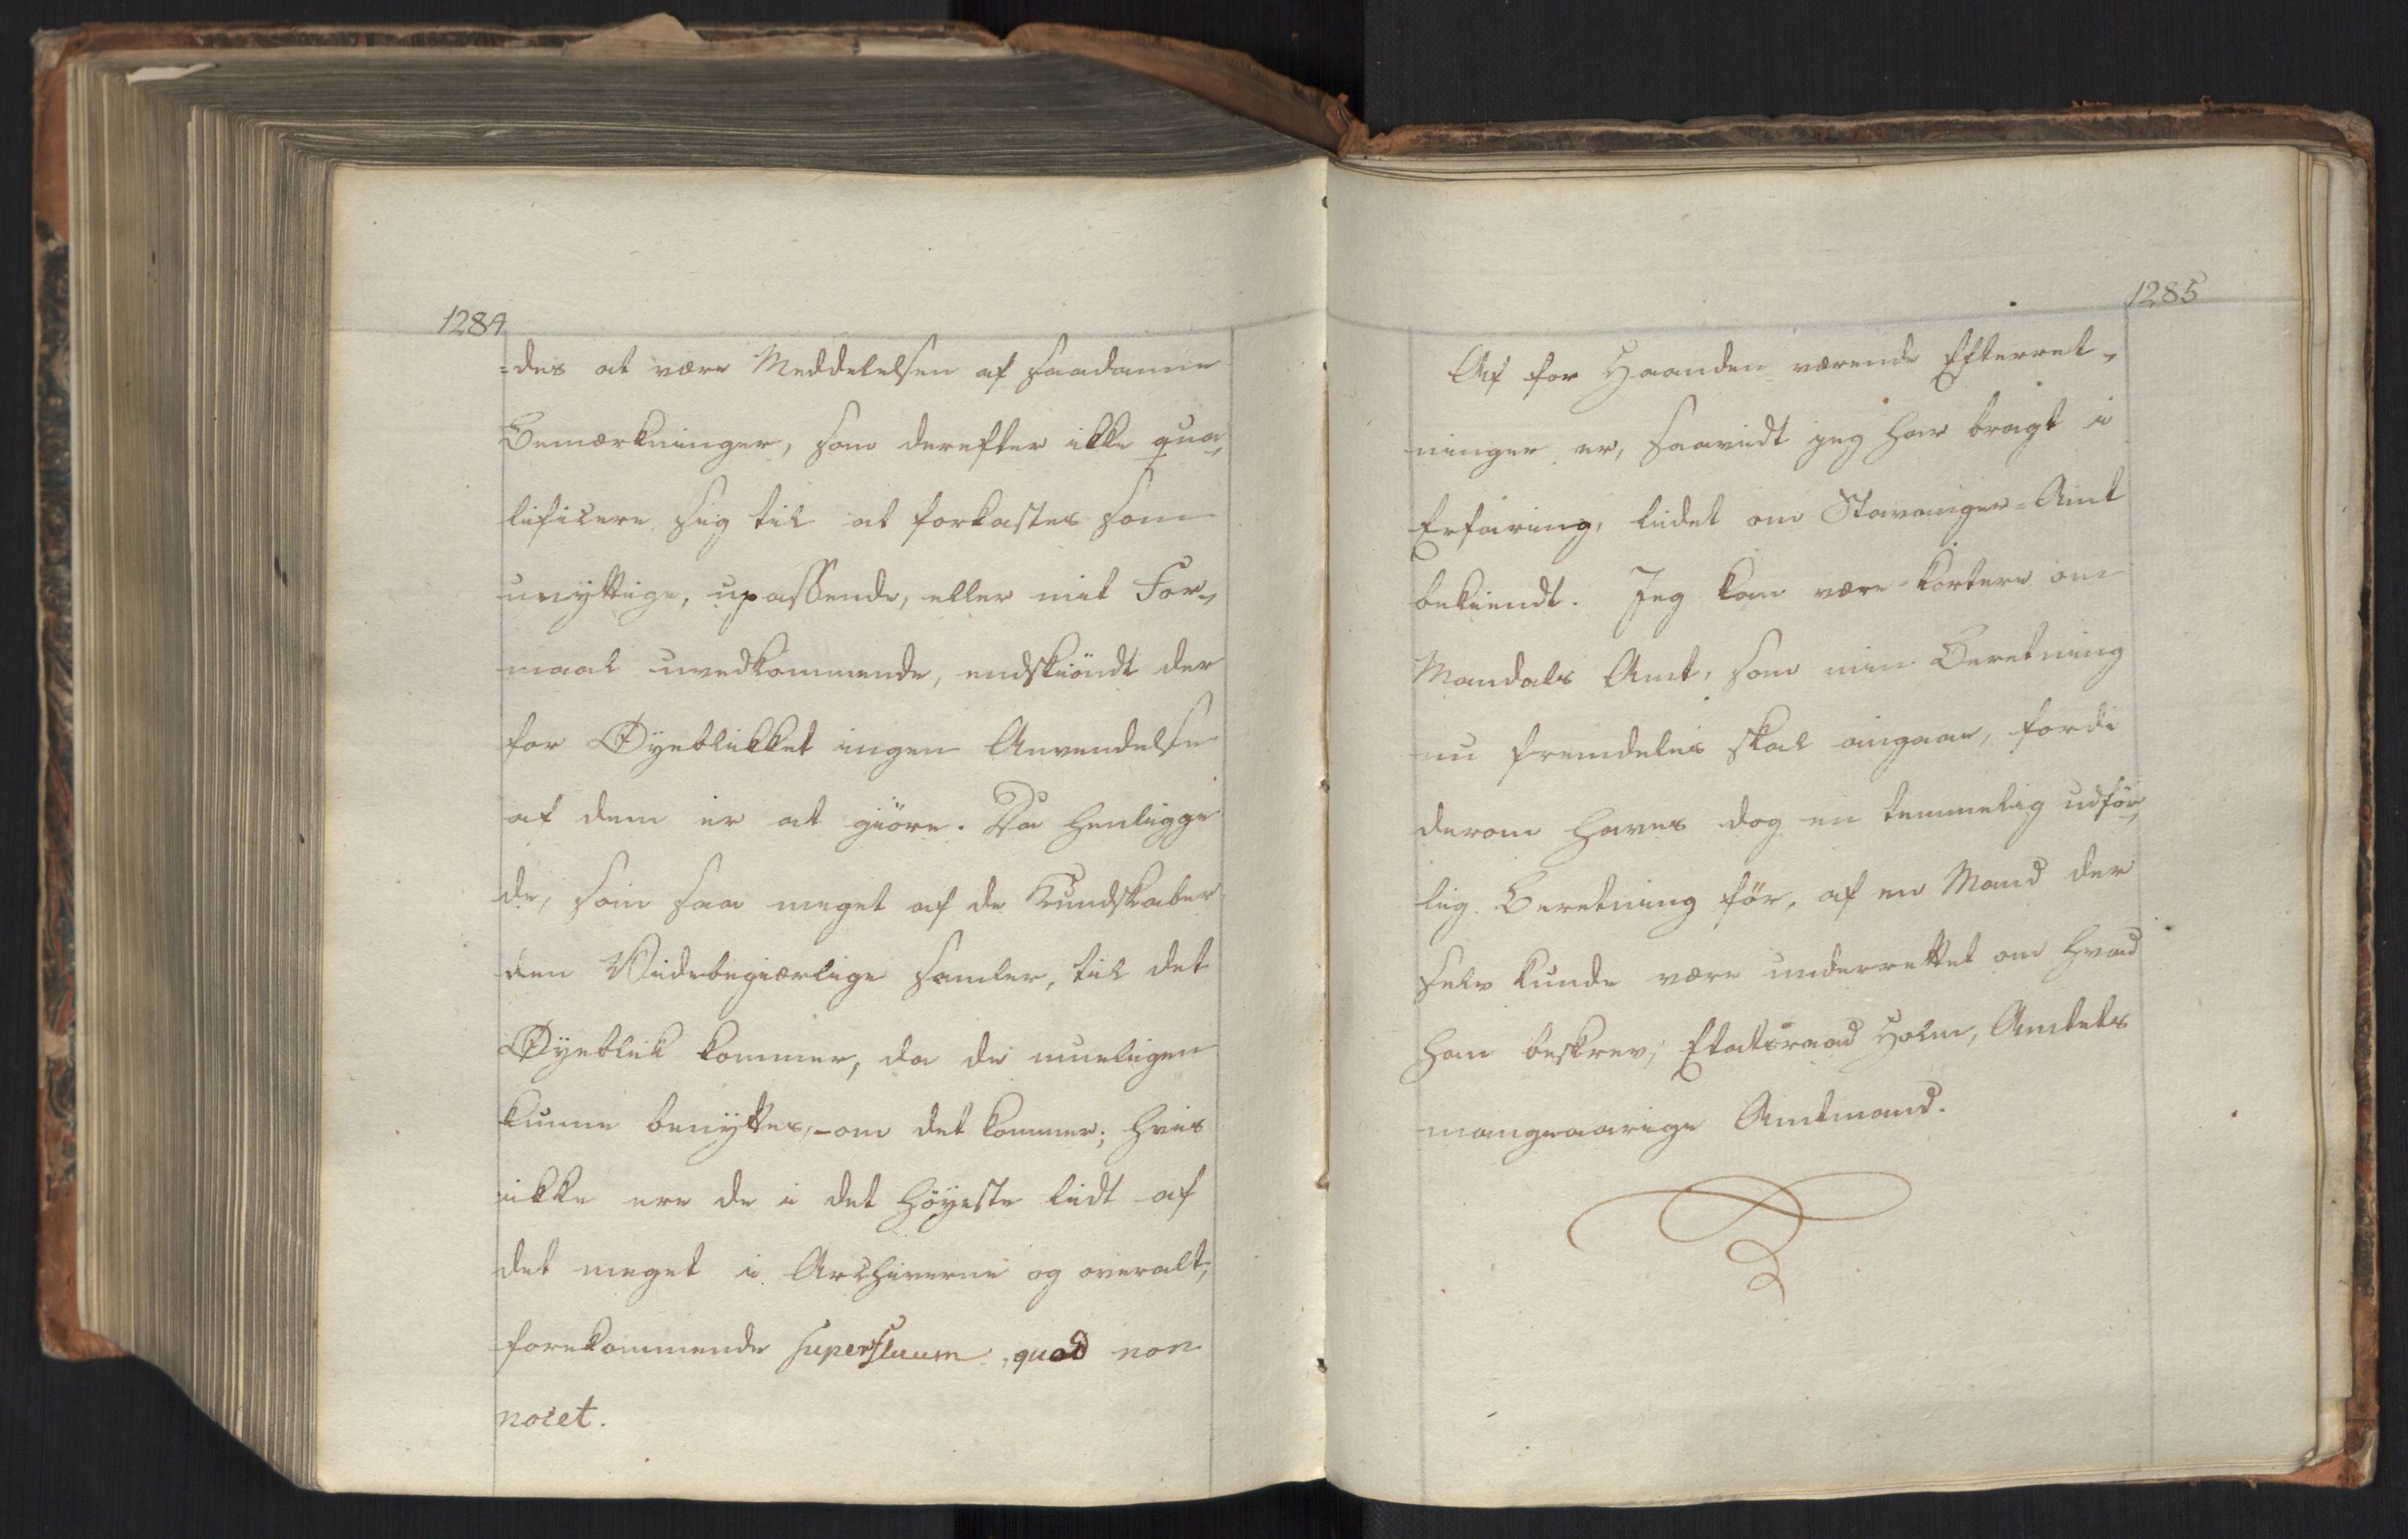 1284
=des at være Meddelelsen af saadanne
Bemærkninger, som derefter ikke qua„
lificere sig til at forkastes som
unyttige, upassende, eller mit For„
maal uvedkommende, endskiöndt der
for Øyeblikket ingen Anvendelse
af dem er at giöre. Da henligge
de, som saa meget af de Kundskaber
den Videbegiærlige samler, til det
Øyeblik kommer, da de mueligen
kunne benyttes, - om det kommer; hvis
ikke ere de i det höyeste lidt af
det meget i Archiverne og overalt,
forekommende superfluum, quod non
nocet.
1285
Af for Haanden værende Efterret„
ninger er, saavidt jeg har bragt i
Erfaring, lidet om Stavanger=Amt
bekiendt. Jeg kan være kortere om
Mandals Amt, som min Beretning
nu fremdeles skal angaae, fordi
derom haves dog en temmelig udför„
lig Beretning för, af en Mand der
selv kunde være underrettet om hvad
han beskrev, Etatsraad Holm, Amtets
mangeaarige Amtmand.